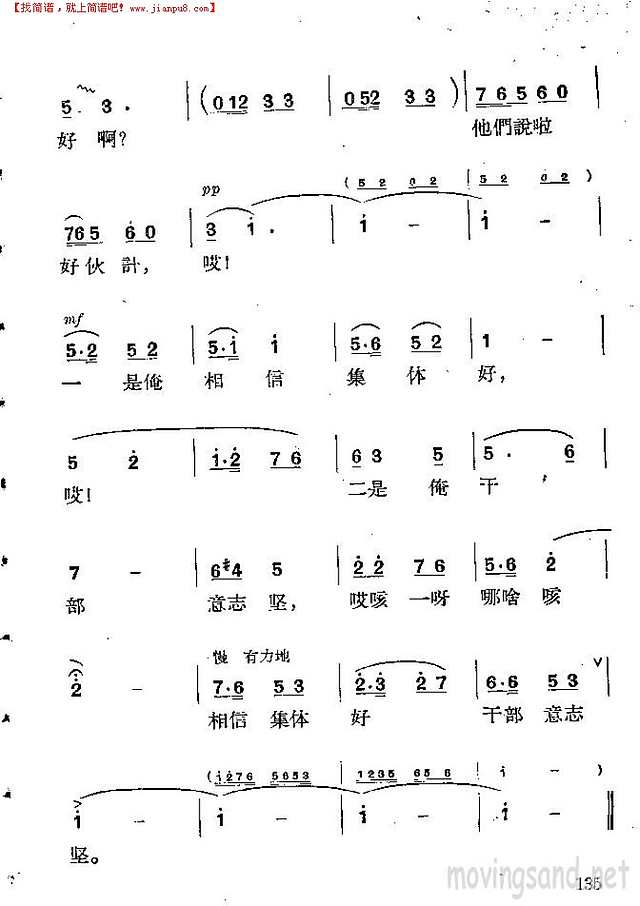 【找简谱，就上简谱吧! www.jianpu8.com】
5 3 . | ( 012 3 3 | 052 3 3 ) | 76560 |
好啊? 他們說啦
pp ( 5 2 0 2 | 5 2 0 2 )
765 6 0 | 3 1 . | 1 – | 1 – |
好伙計, 哎!
mf
5·2 5 2 | 5·1 1 | 5·6 5 2 | 1 – |
一是俺 相信 集体 好,
5 2 | 1·2 7 6 | 6 3 5 | 5 . 6 |
哎! 二是 俺 干
7 – | 6#4 5 | 2 2 7 6 | 5·6 2 |
部 意志 坚, 哎咳 一呀 哪啥 咳
慢 有力地 V
2 – | 7·6 5 3 | 2·3 2 7 | 6·6 5 3 |
相信 集体 好 干部 意志
( 1276 5653 | 1235 65 6 | 1 – )
1 – | 1 – | 1 – | 1 – ‖
坚。
135
movingsand.net